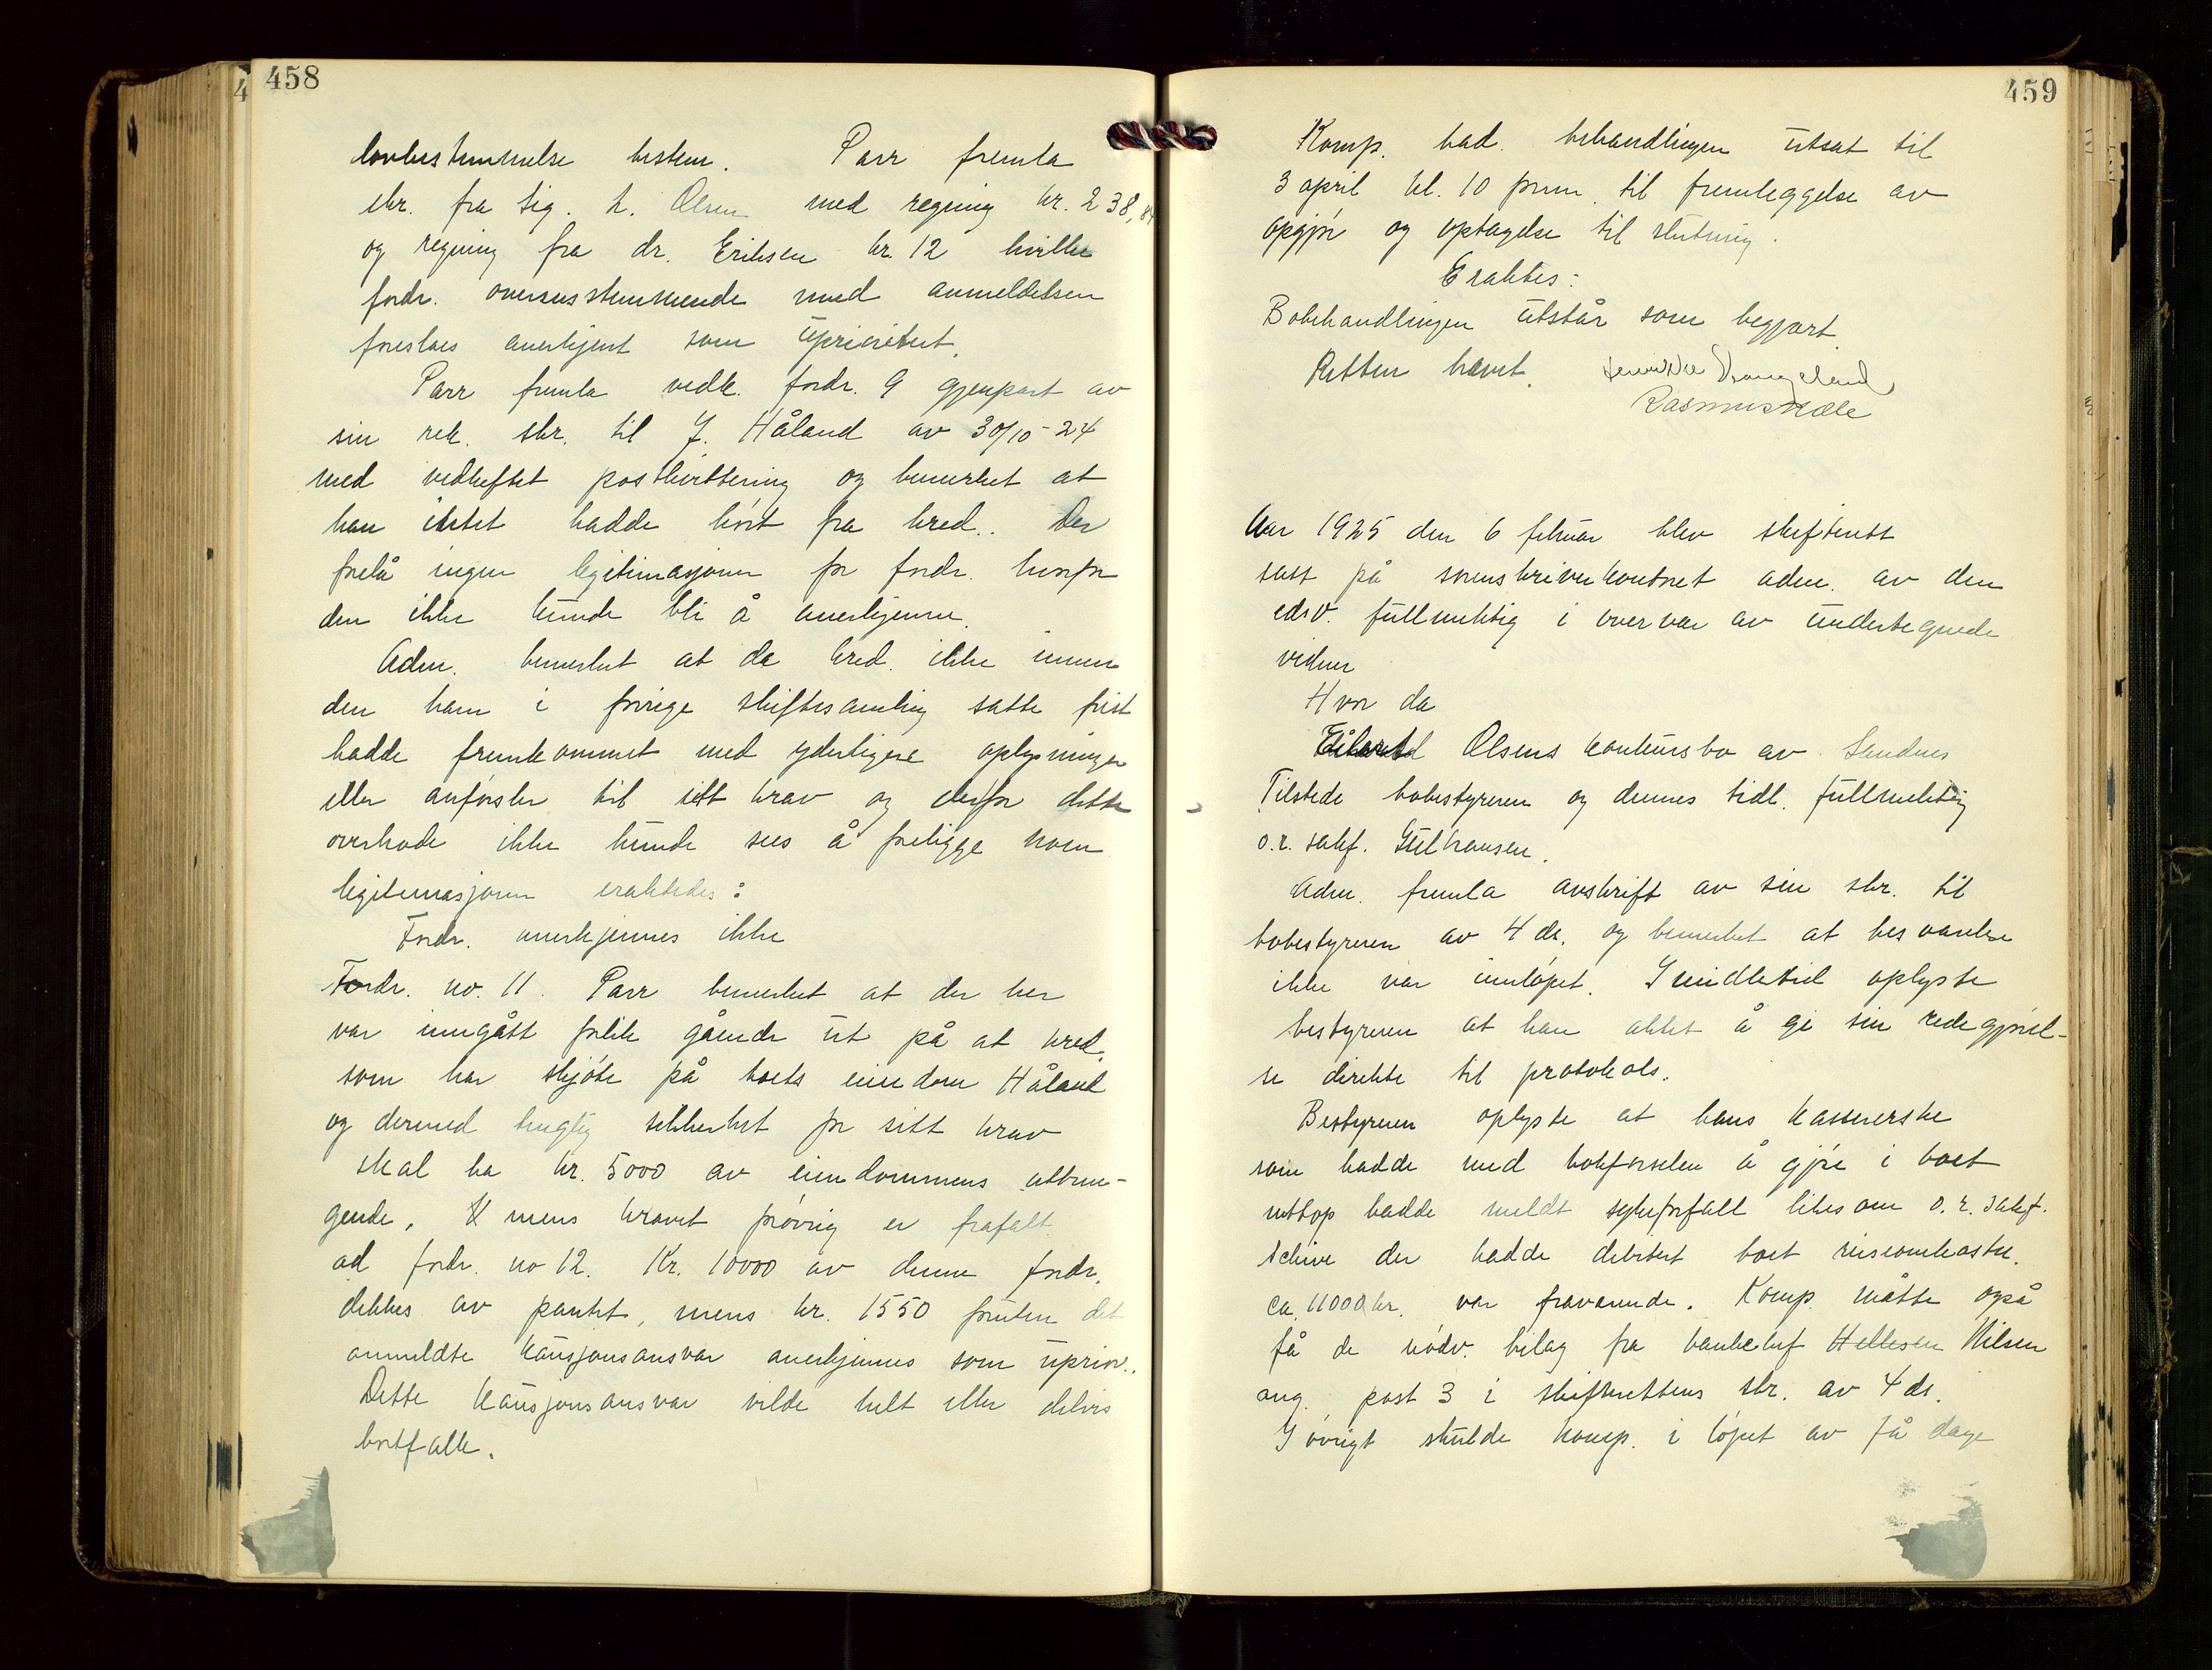 458
lovbestemmelse bestem. Parr fremla
skr. fra Sig. L. Olsen med regning kr. 238,84
og regning fra dr. Eriksen kr. 12 hvilke
fordr. overensstemmende med anmeldelsen
foreslaes anerkjent som uprioritert.
Parr fremla vedk. fordr. 9 gjenpart av
sin rek. skr. til J. Håland av 30/10-24
med vedheftet postkvittering og bemerket at
han intet hadde hørt fra kred.. Der
forelå ingen legitimasjoner for fordr. hvorfor
den ikke kunde bli å anerkjenne.
Adm. bemerket at da kred. ikke innen
den ham i forrige skiftesamling satte frist
hadde fremkommet med yderligere oplysninger
eller anførsler til sitt krav og derfor dette
overhode ikke kunde sees å foreligge noen
legitimasjoner eraktedes:
Fordr. anerkjennes ikke
Fordr. no. 11. Parr bemerket at der her
var inngått forlik gående ut på at kred.
som har skjøte på boets eiendom Håland
og dermed trygtig sikkerhet for sitt krav
skal ha kr. 5000 av eiendommens utbrin-
gende, mens kravet forøvrig er frafalt.
ad fordr. no 12. Kr. 10000 av denne fordr.
dekkes av pantet, mens kr. 1550 foruten det
anmeldte kausjonsansvar anerkjennes som uprior..
Dette kausjonsansvar vilde helt eller delvis
bortfalle.
459
Komp. bad behandlingen utsat til
3 april kl. 10 form. til fremleggelse av
opgjør og optagelse til slutning.
Eraktes:
Bobehandlingen utstår som begjært.
Retten hævet. Vrangeland
Rasmus Næle
Aar 1925 den 6 februar blev skifterett
satt på sorenskriverkontoret adm. av den
edsv. fullmektig i overvær av undertegnede
vidner
Hvor da
Olsens konkursbo av Sandnes
Tilstede bobestyreren og dennes tidl. fullmektig
o.r. sakf. Gulhausen.
Adm. fremla avskrift av sin skr. til
bobestyreren av 4 ds. og bemerket at besvarelse
ikke var innløpet. Imidletid oplyste
bestyreren at han aktet å gi sin redegjørel-
se direkte til protokols.
Bestyreren oplyste at hans kassererske
som hadde med bokførselen å gjøre i boet
nettop hadde meldt sykeforfall likesom o.r. sakf.
Schive der hadde debitert boet reiseomkostn.
ca. 11000 kr. var fraværende. Komp. måtte også
få de nødv. bilag fra bankchef Hellesen Nilsen
ang. post 3 i skifterettens skr. av 4 ds.
I øvrigt skulde komp. i løpet av få dage